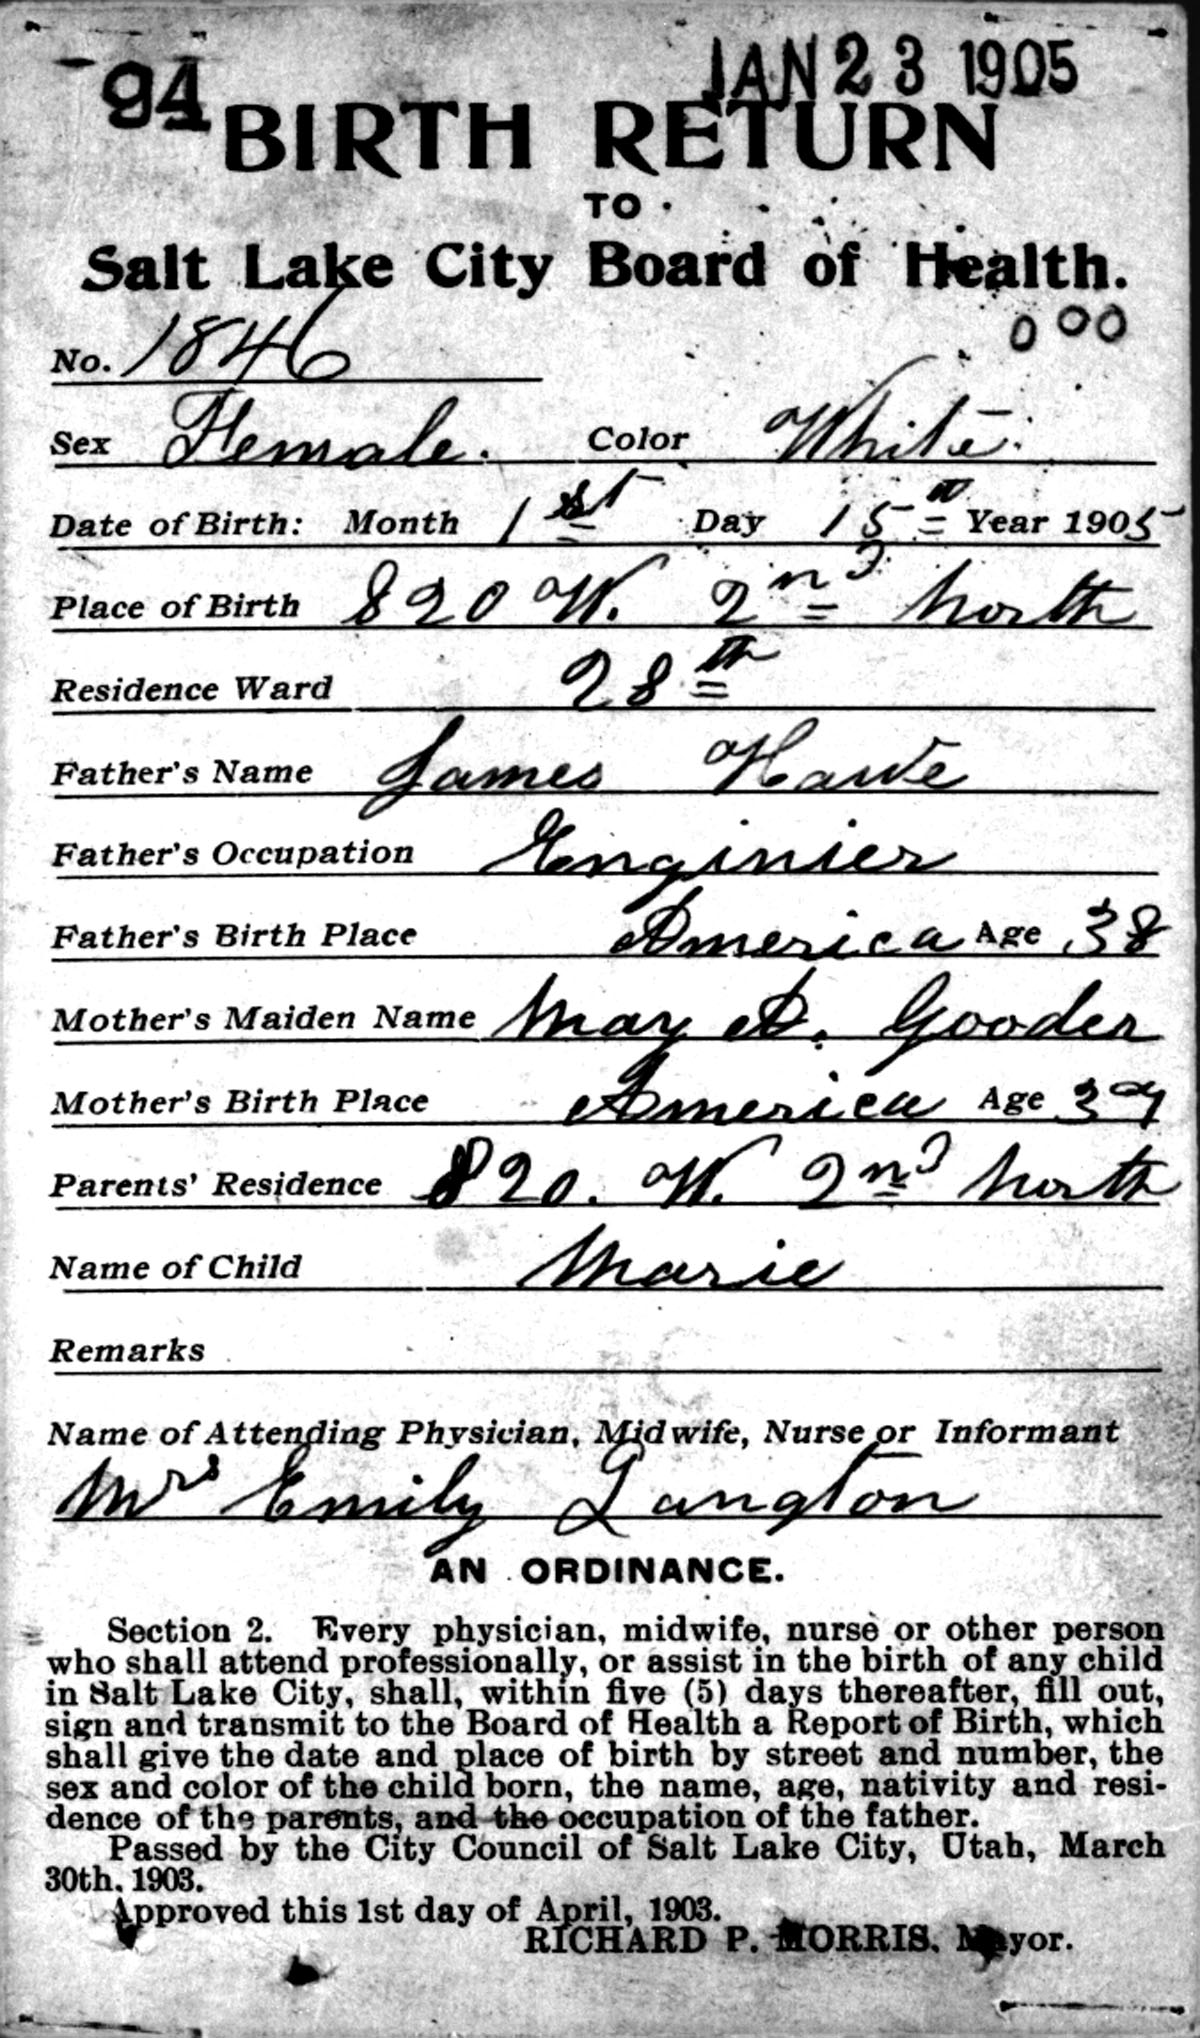 94 JAN 23 1905
BIRTH RETURN
TO
Salt Lake City Board of Health.
No. 1846 000
Sex Female. Color White.
Date of Birth: Month 1st Day 15th Year 1905
Place of Birth 820 W. 2nd North
Residence Ward 28th
Father's Name James Hawe
Father's Occupation Enginier
Father's Birth Place America Age 38
Mother's Maiden Name May A. Gooder
Mother's Birth Place America Age 37
Parents' Residence 820. W. 2nd North
Name of Child Marie
Remarks
Name of Attending Physician, Midwife, Nurse or Informant
Mrs Emily Langton
AN ORDINANCE.
Section 2. Every physician, midwife, nurse or other person
who shall attend professionally, or assist in the birth of any child
in Salt Lake City, shall, within five (5) days thereafter, fill out,
sign and transmit to the Board of Health a Report of Birth, which
shall give the date and place of birth by street and number, the
sex and color of the child born, the name, age, nativity and resi-
dence of the parents, and the occupation of the father.
Passed by the City Council of Salt Lake City, Utah, March
30th, 1903.
Approved this 1st day of April, 1903.
RICHARD P. MORRIS, Mayor.